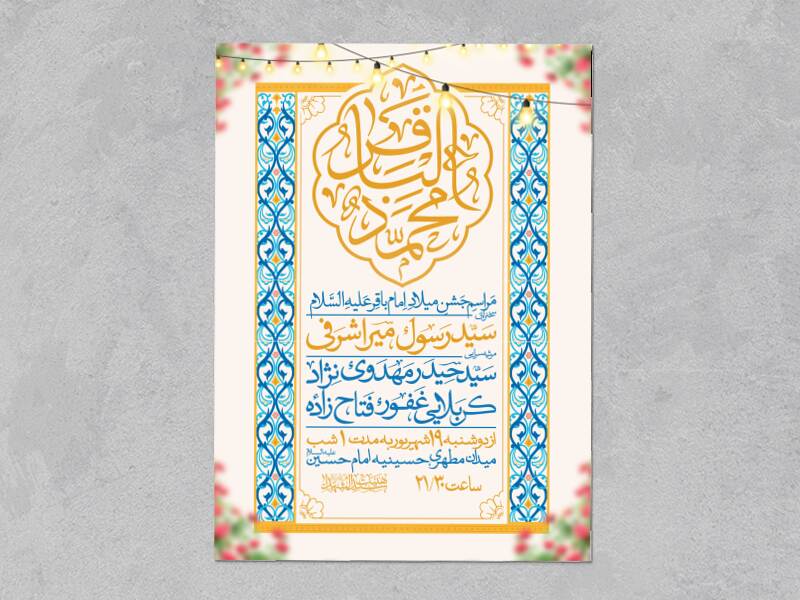 محمد الباقر
مراسم جشن میلاد امام باقر علیه السلام
سخنرانی
سید رسول میراشرفی
مدیحه‌سرایی
سید حیدر مهدوی نژاد
کربلایی غفور فتاح زاده
از دوشنبه ۱۹ شهریور به مدت ۱ شب
میدان مطهری، حسینیه امام حسین علیه السلام
ساعت ۲۱/۳۰